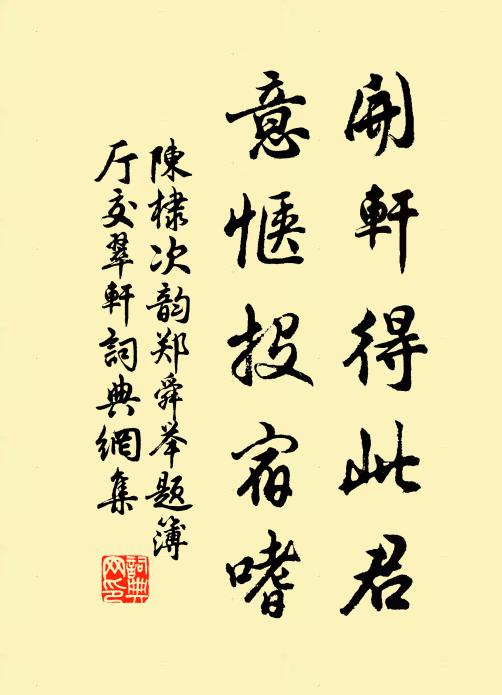 開軒得此君
意愜投宿嗜
陳棣次韵郑舜举题簿
厅交翠軒詞典網集
詞典网印